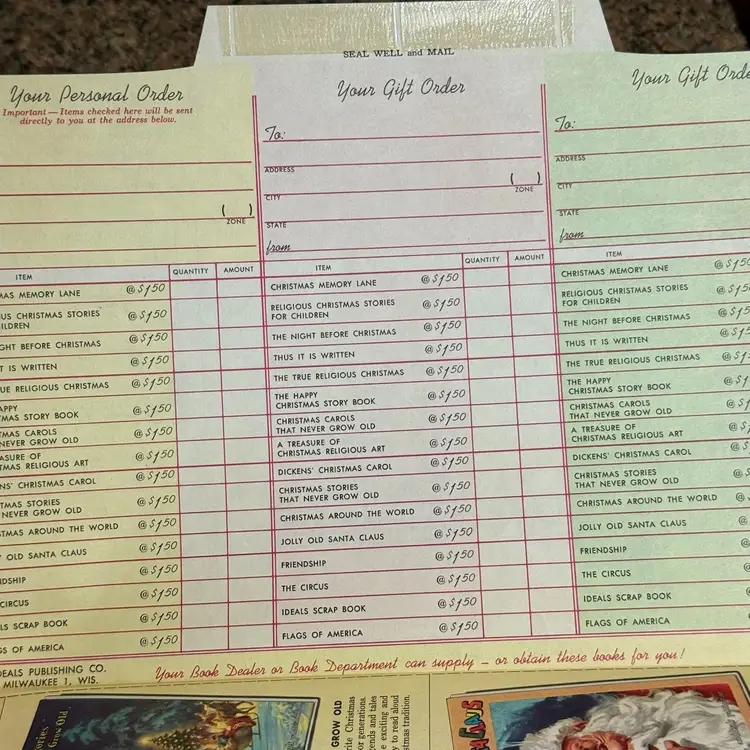 SEAL WELL and MAIL
Your Personal Order
Important — Items checked here will be sent
directly to you at the address below.
( )
ZONE
ITEM QUANTITY AMOUNT
MAS MEMORY LANE @ $1.50
OUS CHRISTMAS STORIES
ILDREN @ $1.50
GHT BEFORE CHRISTMAS @ $1.50
T IS WRITTEN @ $1.50
UE RELIGIOUS CHRISTMAS @ $1.50
APPY
MAS STORY BOOK @ $1.50
TMAS CAROLS
NEVER GROW OLD @ $1.50
ASURE OF
TMAS RELIGIOUS ART @ $1.50
NS' CHRISTMAS CAROL @ $1.50
TMAS STORIES
NEVER GROW OLD @ $1.50
STMAS AROUND THE WORLD @ $1.50
OLD SANTA CLAUS @ $1.50
DSHIP @ $1.50
CIRCUS @ $1.50
LS SCRAP BOOK @ $1.50
GS OF AMERICA @ $1.50
Your Gift Order
To:
ADDRESS
( )
CITY ZONE
STATE
from
ITEM QUANTITY AMOUNT
CHRISTMAS MEMORY LANE @ $1.50
RELIGIOUS CHRISTMAS STORIES
FOR CHILDREN @ $1.50
THE NIGHT BEFORE CHRISTMAS @ $1.50
THUS IT IS WRITTEN @ $1.50
THE TRUE RELIGIOUS CHRISTMAS @ $1.50
THE HAPPY
CHRISTMAS STORY BOOK @ $1.50
CHRISTMAS CAROLS
THAT NEVER GROW OLD @ $1.50
A TREASURE OF
CHRISTMAS RELIGIOUS ART @ $1.50
DICKENS' CHRISTMAS CAROL @ $1.50
CHRISTMAS STORIES
THAT NEVER GROW OLD @ $1.50
CHRISTMAS AROUND THE WORLD @ $1.50
JOLLY OLD SANTA CLAUS @ $1.50
FRIENDSHIP @ $1.50
THE CIRCUS @ $1.50
IDEALS SCRAP BOOK @ $1.50
FLAGS OF AMERICA @ $1.50
Your Gift Orde
To:
ADDRESS
CITY
STATE
from
ITEM
CHRISTMAS MEMORY LANE @ $1.50
RELIGIOUS CHRISTMAS STORIES
FOR CHILDREN @ $1.5
THE NIGHT BEFORE CHRISTMAS @ $1.5
THUS IT IS WRITTEN @ $1.5
THE TRUE RELIGIOUS CHRISTMAS @ $1.
THE HAPPY
CHRISTMAS STORY BOOK @ $1.
CHRISTMAS CAROLS
THAT NEVER GROW OLD @ $1
A TREASURE OF
CHRISTMAS RELIGIOUS ART @ $
DICKENS' CHRISTMAS CAROL @ $
CHRISTMAS STORIES
THAT NEVER GROW OLD @
CHRISTMAS AROUND THE WORLD @
JOLLY OLD SANTA CLAUS @
FRIENDSHIP @
THE CIRCUS @
IDEALS SCRAP BOOK
FLAGS OF AMERICA
DEALS PUBLISHING CO.
MILWAUKEE 1, WIS.
Your Book Dealer or Book Department can supply – or obtain these books for you!
ories
Grow Old
GROW OLD
rite Christmas
or generations.
gends and tales
e exciting and
y to read aloud
stmas tradition.